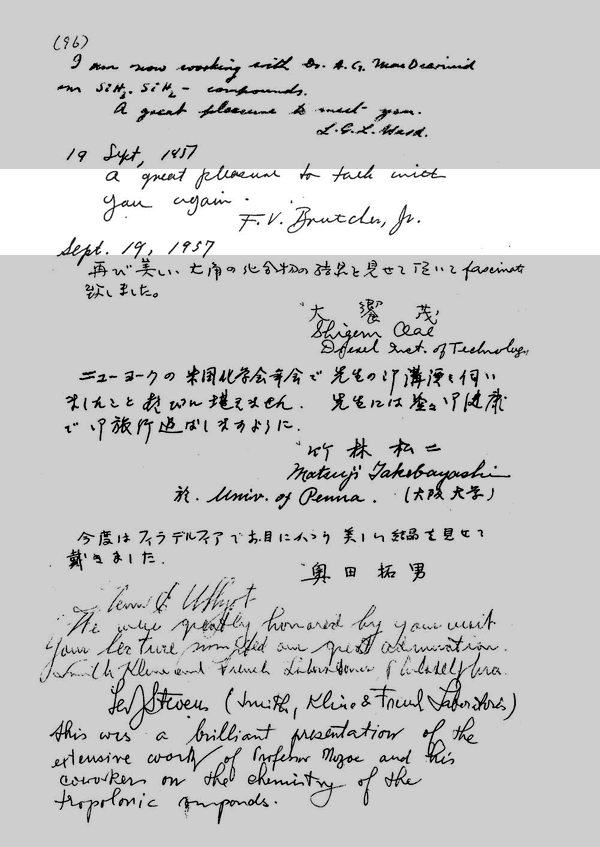 (96)
I am now working with Dr. A. G. MacDiarmid
on SiH3. SiH2 - compounds.
A great pleasure to meet you.
L. G. L.
19 Sept, 1957
A great pleasure to talk with
you again.
F. V. Brutcher, Jr.
Sept. 19, 1957
再び美しい七角の化合物の結晶を見せて頂いて fascinate
致しました。
大饗 茂
Shigeru Oae
Drexel Inst. of Technology
ニューヨークの米国化学会年会で先生の御講演を伺い
ましたこと 喜びに堪えません. 先生には益々御健康
で御旅行遊ばしますように.
竹林松二
Matsuji Takebayashi
於. Univ. of Penna. (大阪大学)
今度はフィラデルフィアでお目にかかり 美しい結晶を見せて
戴きました.
奥田拓男
We were greatly honored by your visit
Your lecture our great admiration.
Smith Kline and French Laboratories Philadelphia.
Stevens (Smith, Kline & French Laboratories)
This was a brilliant presentation of the
extensive work of Professor Nozoe and his
coworkers on the chemistry of the
tropolonic compounds.